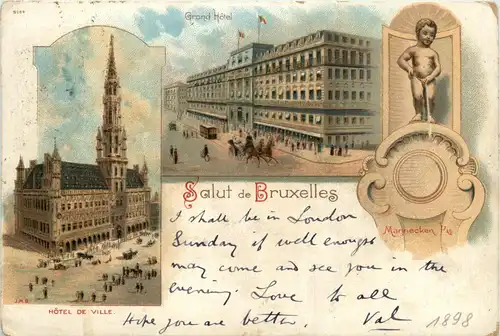 9144
Grand Hôtel
Salut de Bruxelles
Mannecken Pis
J.M.B.
HÔTEL DE VILLE.
I shall be in London
Sunday if well enough
may come and see you in the
evening. Love to all
Hope you are better. Val
1898